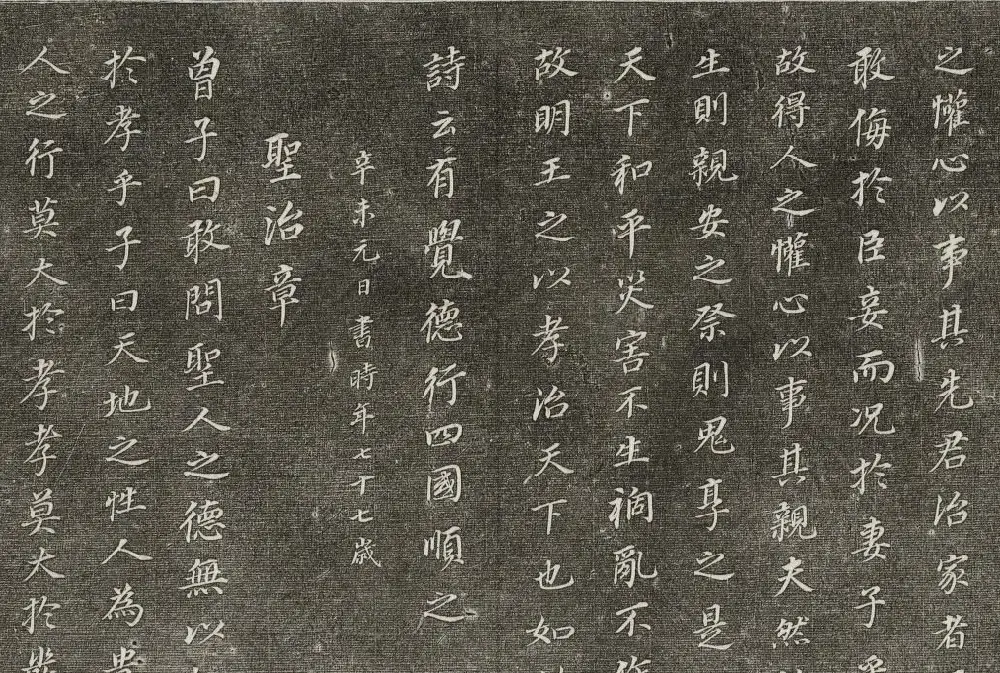 之懽心以事其先君治家者
敢侮於臣妾而况於妻子
故得人之懽心以事其親夫然
生則親安之祭則鬼享之是
天下和平災害不生禍亂不作
故明王之以孝治天下也如
詩云有覺德行四國順之
辛未元日書時年七十七歲
聖治章
曾子曰敢問聖人之德無以
於孝乎子曰天地之性人為貴
人之行莫大於孝孝莫大於嚴